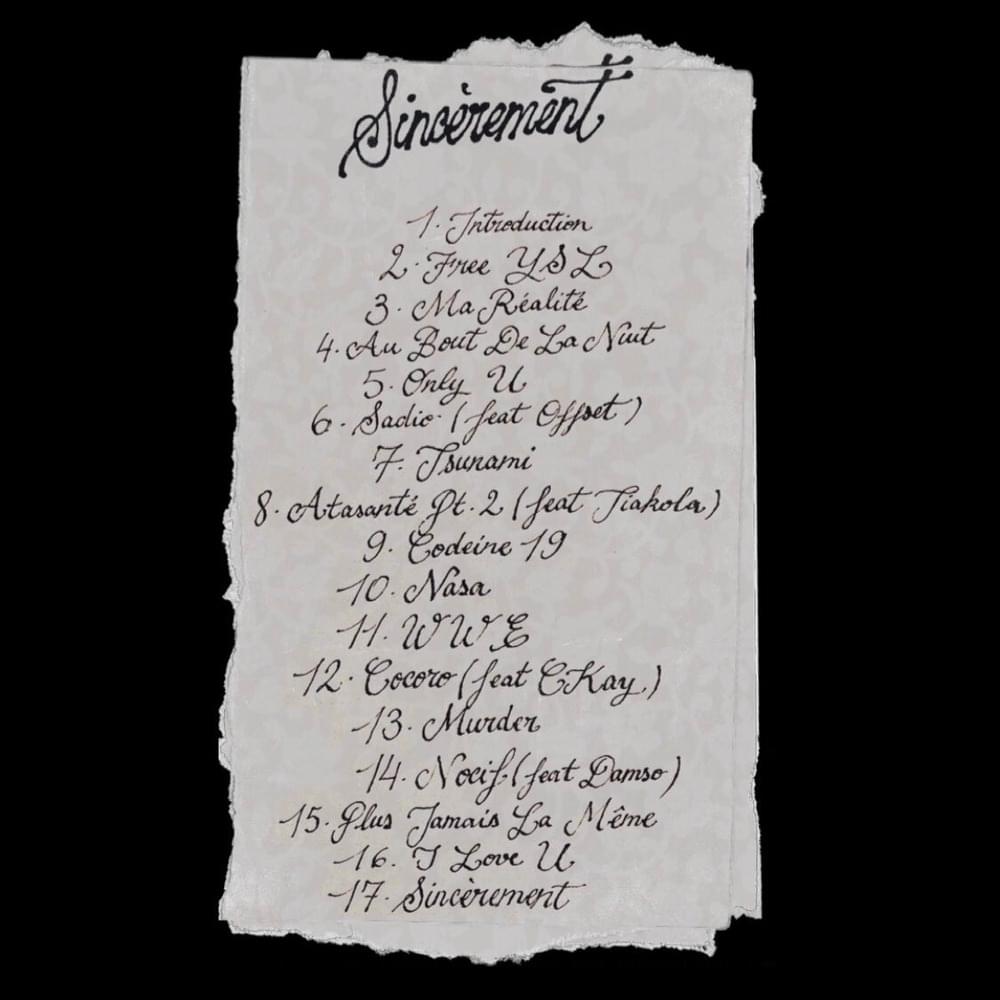 Sincèrement
1. Introduction
2. Free YSL
3. Ma Réalité
4. Au Bout De La Nuit
5. Only U
6. Sadio (feat Offset)
7. Tsunami
8. Atasanté Pt. 2 (feat Tiakola)
9. Codeine 19
10. Nasa
11. WWE
12. Cocoro (feat CKay)
13. Murder
14. Nocif (feat Damso)
15. Plus Jamais La Même
16. I Love U
17. Sincèrement